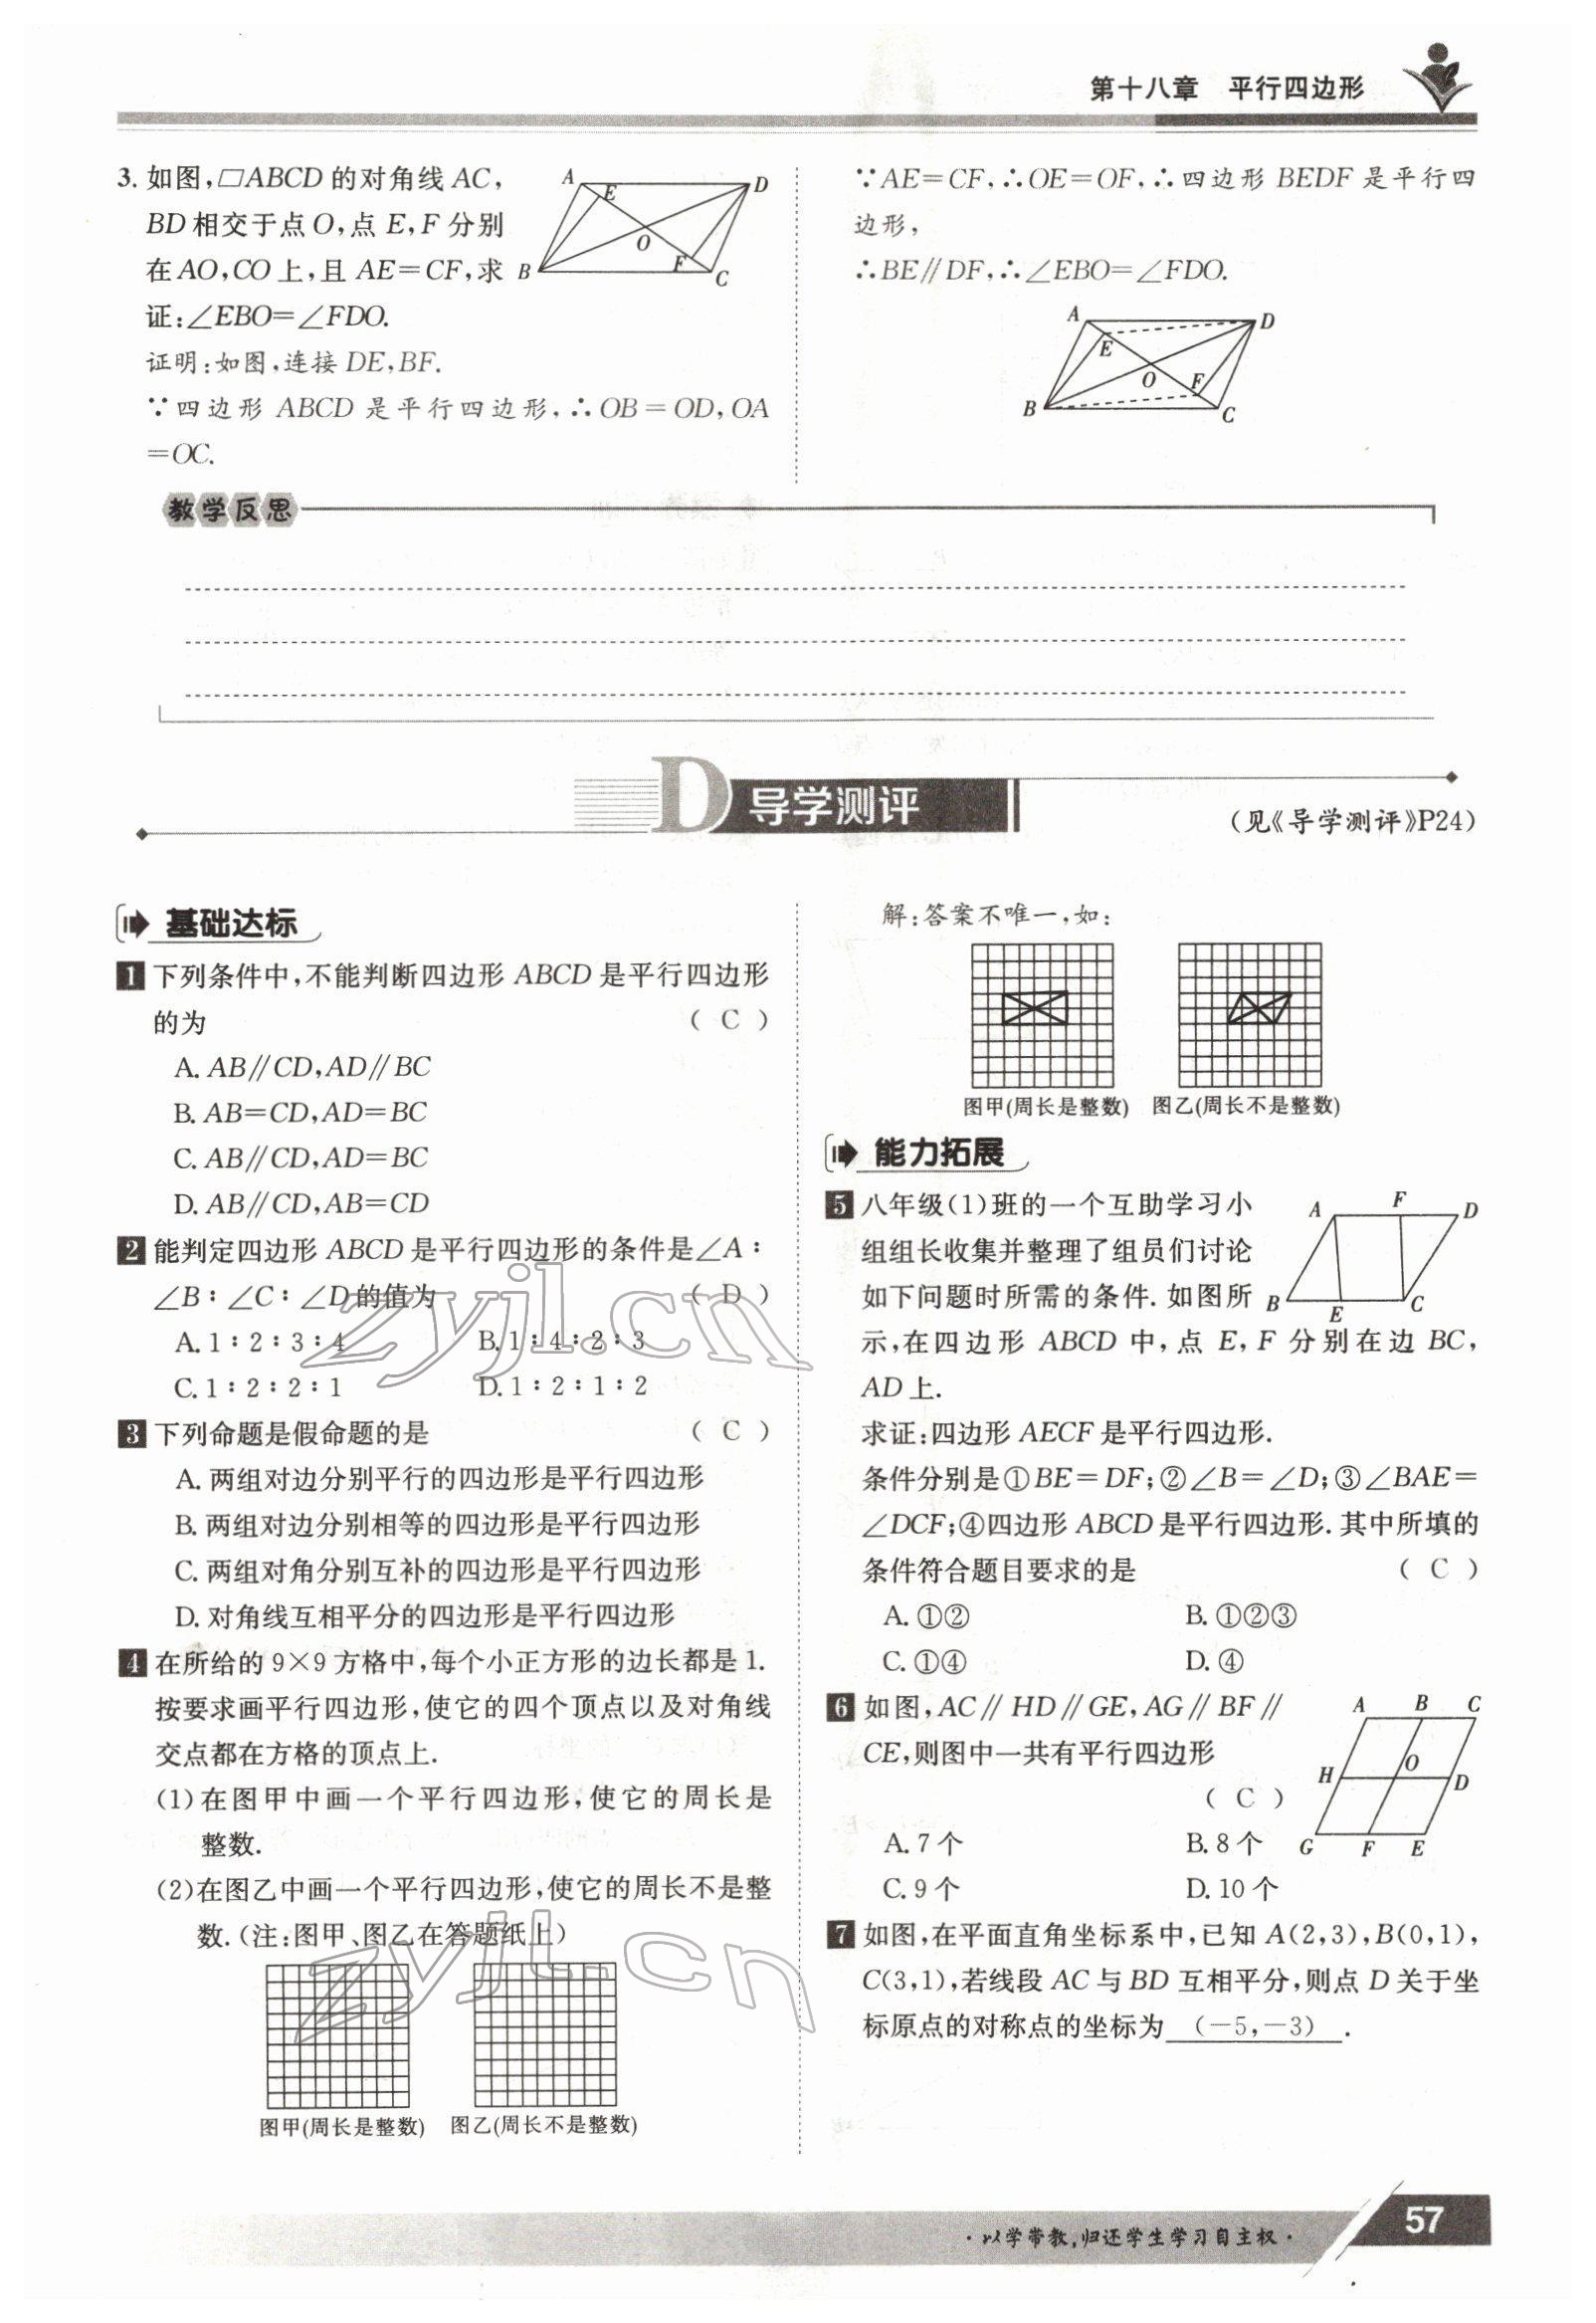 第十八章 平行四边形
3. 如图,▱ABCD 的对角线 AC,
BD 相交于点 O,点 E,F 分别
在 AO,CO 上,且 AE=CF,求
证:∠EBO=∠FDO.
证明:如图,连接 DE,BF.
∵四边形 ABCD 是平行四边形,∴OB=OD,OA
=OC.
A
E
D
O
B
F
C
∵AE=CF,∴OE=OF,∴四边形 BEDF 是平行四
边形,
∴BE∥DF,∴∠EBO=∠FDO.
A
D
E
O
F
B
C
教学反思
D 导学测评
(见《导学测评》P24)
基础达标
1 下列条件中,不能判断四边形 ABCD 是平行四边形
的为 ( C )
A. AB∥CD,AD∥BC
B. AB=CD,AD=BC
C. AB∥CD,AD=BC
D. AB∥CD,AB=CD
2 能判定四边形 ABCD 是平行四边形的条件是∠A∶
∠B∶∠C∶∠D的值为 ( D )
A. 1∶2∶3∶4 B. 1∶4∶2∶3
C. 1∶2∶2∶1 D. 1∶2∶1∶2
3 下列命题是假命题的是 ( C )
A. 两组对边分别平行的四边形是平行四边形
B. 两组对边分别相等的四边形是平行四边形
C. 两组对角分别互补的四边形是平行四边形
D. 对角线互相平分的四边形是平行四边形
4 在所给的 9×9 方格中,每个小正方形的边长都是 1.
按要求画平行四边形,使它的四个顶点以及对角线
交点都在方格的顶点上.
(1)在图甲中画一个平行四边形,使它的周长是
整数.
(2)在图乙中画一个平行四边形,使它的周长不是整
数.(注:图甲、图乙在答题纸上)
图甲(周长是整数) 图乙(周长不是整数)
解:答案不唯一,如:
图甲(周长是整数) 图乙(周长不是整数)
能力拓展
5 八年级(1)班的一个互助学习小
组组长收集并整理了组员们讨论
如下问题时所需的条件. 如图所
示,在四边形 ABCD 中,点 E,F 分别在边 BC,
AD 上.
求证:四边形 AECF 是平行四边形.
条件分别是①BE=DF;②∠B=∠D;③∠BAE=
∠DCF;④四边形 ABCD 是平行四边形. 其中所填的
条件符合题目要求的是 ( C )
A. ①② B. ①②③
C. ①④ D. ④
A F D
B E C
6 如图,AC∥HD∥GE,AG∥BF∥
CE,则图中一共有平行四边形
( C )
A. 7 个 B. 8 个
C. 9 个 D. 10 个
A B C
H O D
G F E
7 如图,在平面直角坐标系中,已知 A(2,3),B(0,1),
C(3,1),若线段 AC 与 BD 互相平分,则点 D 关于坐
标原点的对称点的坐标为 (-5,-3) .
zyjl.cn
zyjl.cn
·以学带教,归还学生学习自主权·
57